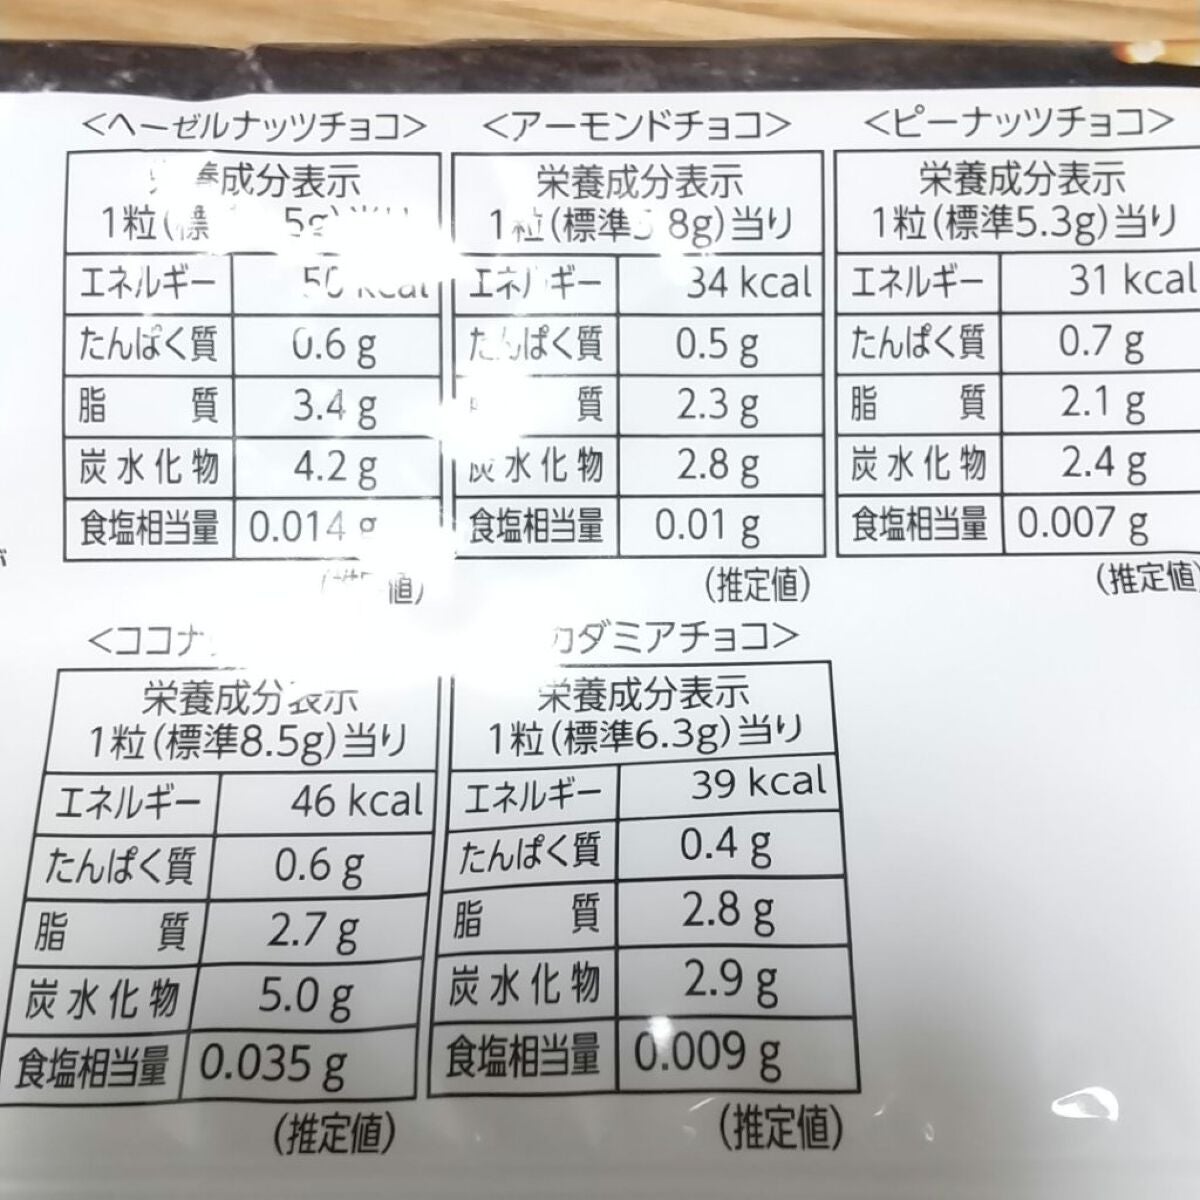 <ヘーゼルナッツチョコ>
養成分表示
1粒(標 5g)当り
エネルギー 50 kcal
たんぱく質 0.6 g
脂質 3.4 g
炭水化物 4.2 g
食塩相当量 0.014 g
(推定値)
<アーモンドチョコ>
栄養成分表示
1粒(標準5.8g)当り
エネルギー 34 kcal
たんぱく質 0.5 g
質 2.3 g
炭水化物 2.8 g
食塩相当量 0.01 g
(推定値)
<ピーナッツチョコ>
栄養成分表示
1粒(標準5.3g)当り
エネルギー 31 kcal
たんぱく質 0.7 g
脂質 2.1 g
炭水化物 2.4 g
食塩相当量 0.007 g
(推定値)
が
<ココナ
栄養成分表示
1粒(標準8.5g)当り
エネルギー 46 kcal
たんぱく質 0.6 g
脂質 2.7 g
炭水化物 5.0 g
食塩相当量 0.035 g
(推定値)
カダミアチョコ>
栄養成分表示
1粒(標準6.3g)当り
エネルギー 39 kcal
たんぱく質 0.4 g
脂質 2.8 g
炭水化物 2.9 g
食塩相当量 0.009 g
(推定値)